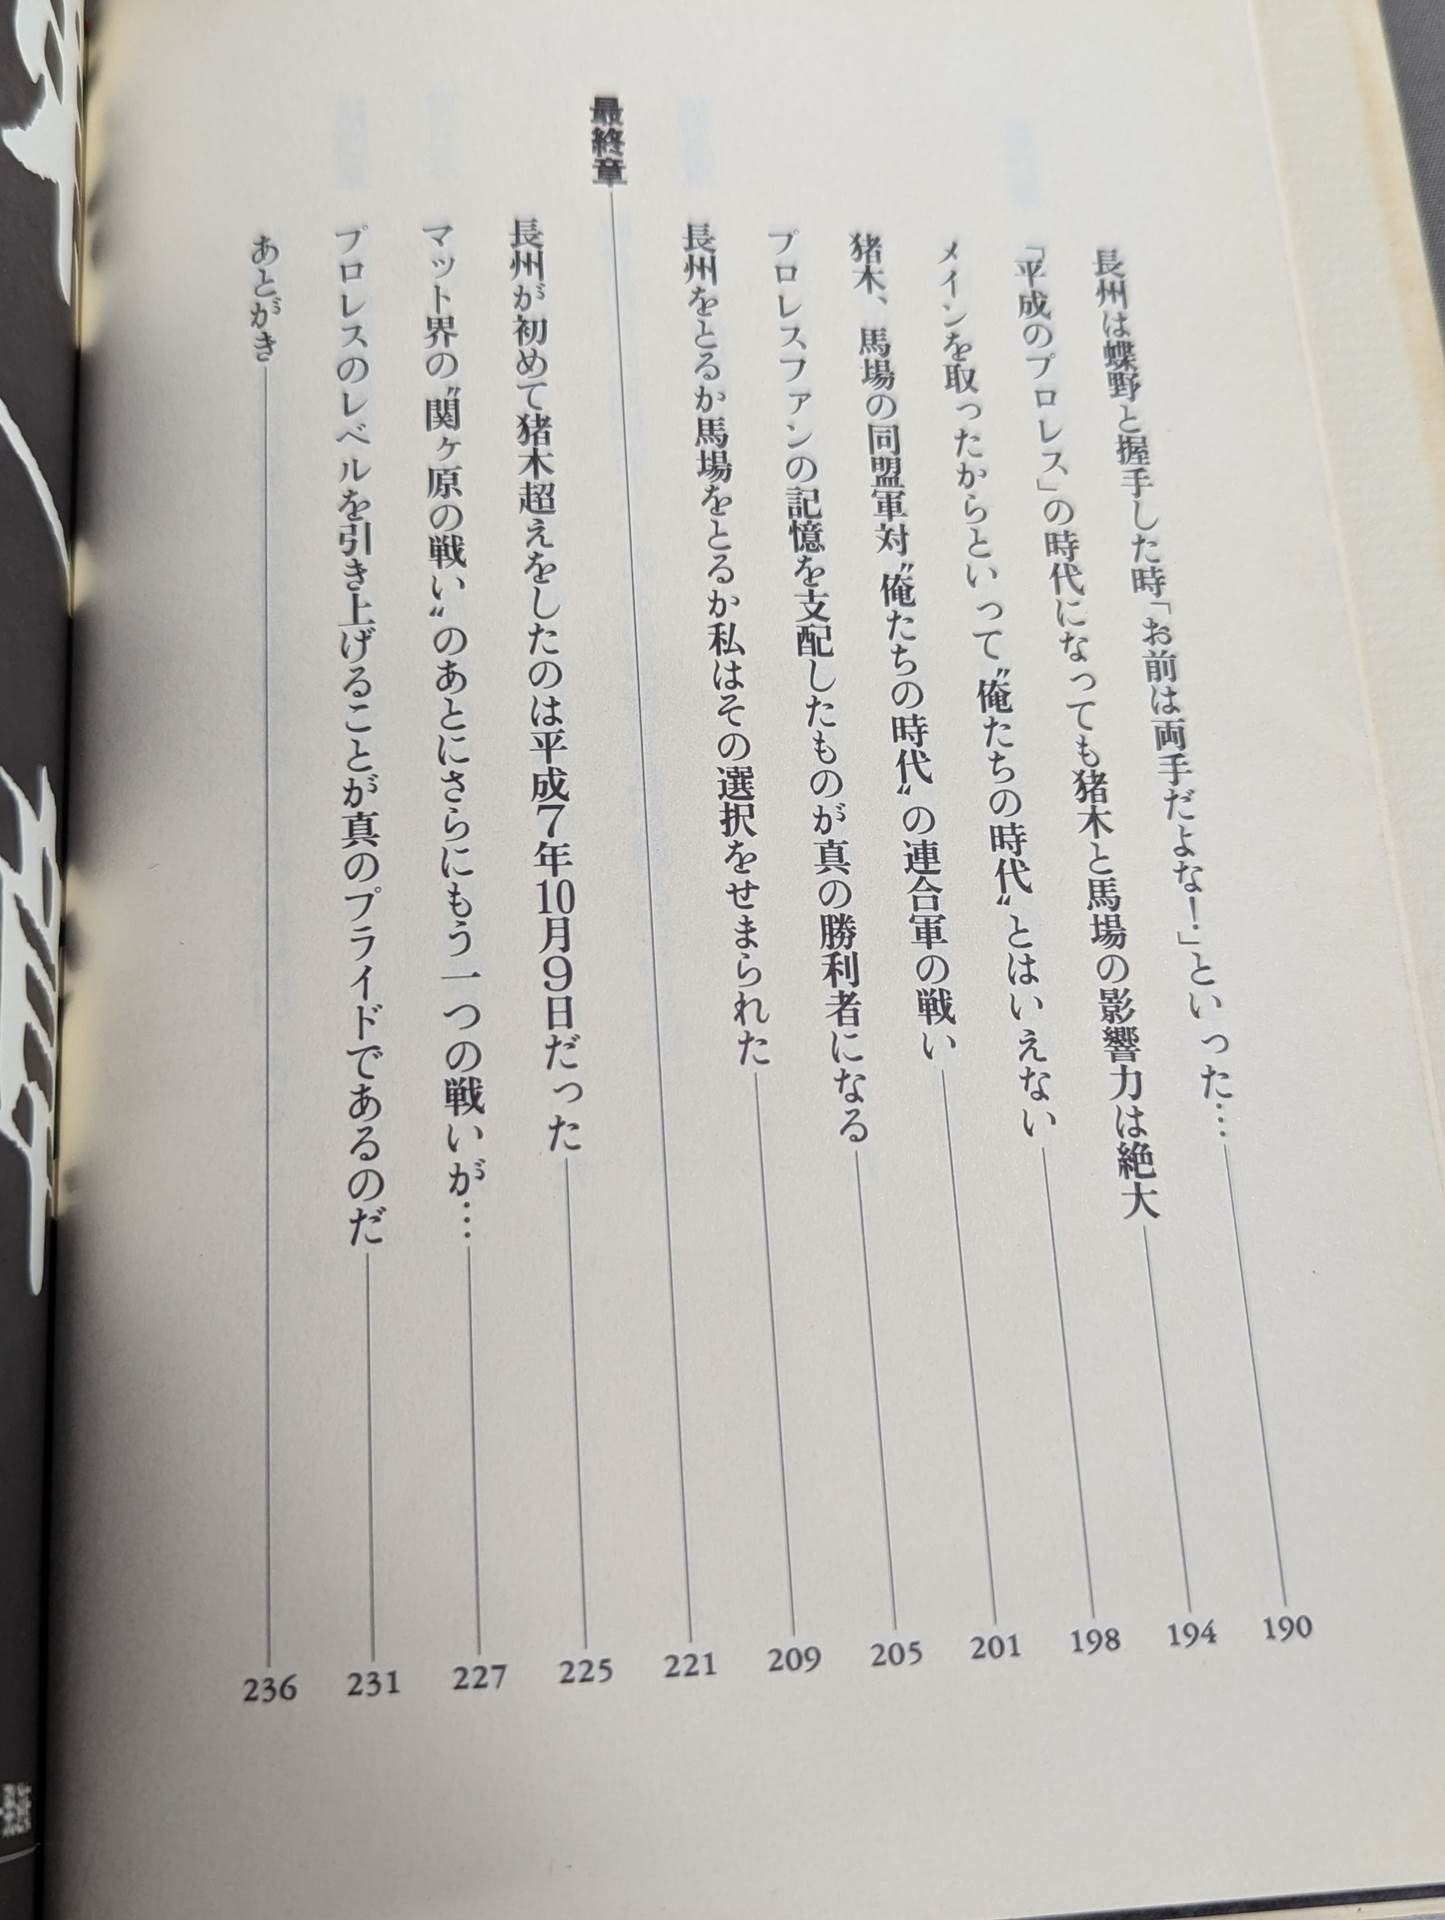 長州は蝶野と握手した時「お前は両手だよな！」といった… 190
「平成のプロレス」の時代になっても猪木と馬場の影響力は絶大 194
メインを取ったからといって〝俺たちの時代〟とはいえない 198
猪木、馬場の同盟軍対〝俺たちの時代〟の連合軍の戦い 201
プロレスファンの記憶を支配したものが真の勝利者になる 205
長州をとるか馬場をとるか私はその選択をせまられた 209
最終章 221
長州が初めて猪木超えをしたのは平成7年10月9日だった 225
マット界の〝関ヶ原の戦い〟のあとにさらにもう一つの戦いが… 227
プロレスのレベルを引き上げることが真のプライドであるのだ 231
あとがき 236